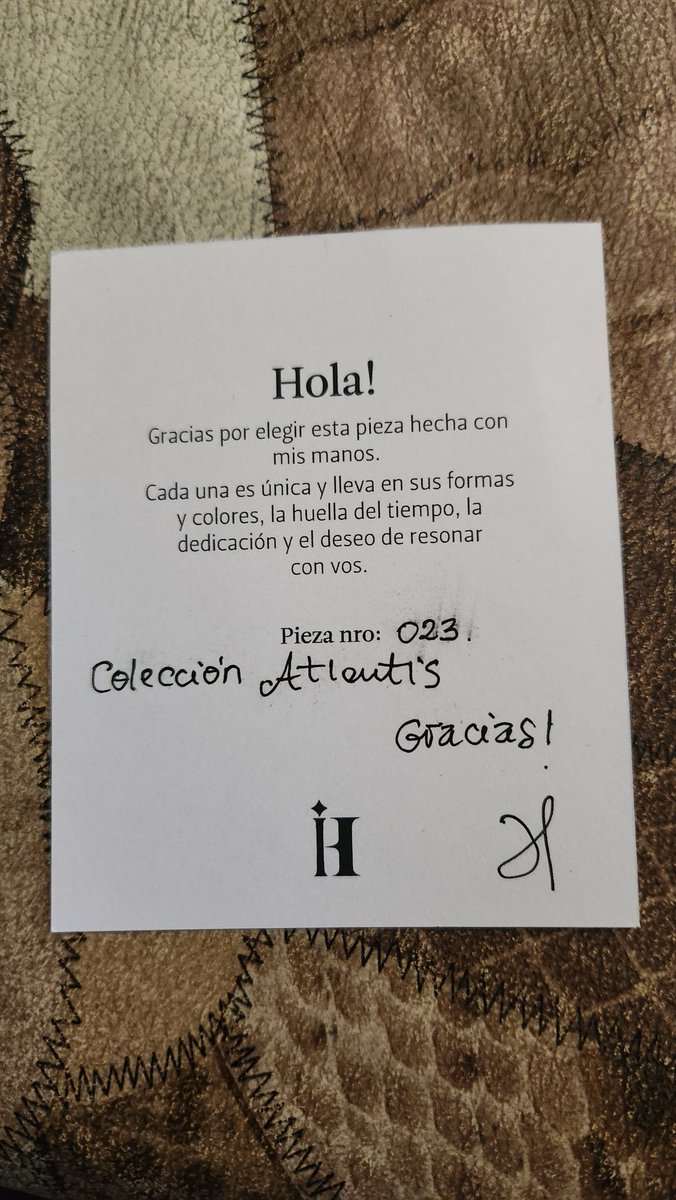 Hola!
Gracias por elegir esta pieza hecha con
mis manos.
Cada una es única y lleva en sus formas
y colores, la huella del tiempo, la
dedicación y el deseo de resonar
con vos.
Pieza nro: 023.
Colección Atlantis
Gracias!
iH